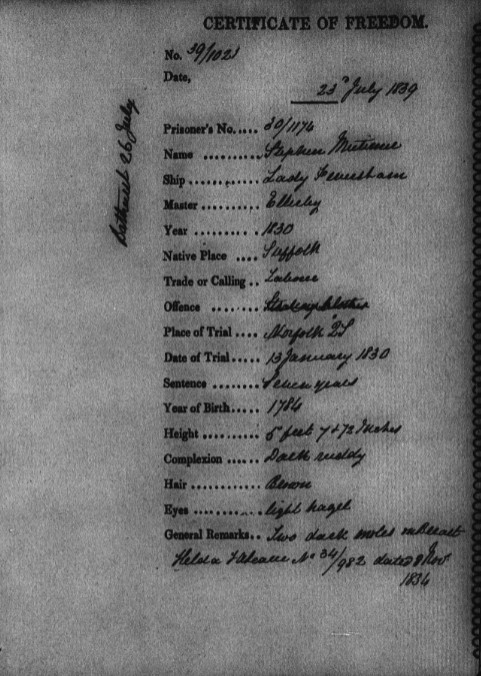 CERTIFICATE OF FREEDOM.
No. 39/1021
Date,
23d July 1839
Bathurst 26 July
Prisoner's No..... 30/1176
Name .......... Stephen
Ship ............ Lady Feversham
Master .......... Ellerby
Year .......... 1830
Native Place .... Suffolk
Trade or Calling .. Labour
Offence ........
Place of Trial .... Norfolk QS
Date of Trial..... 13 January 1830
Sentence ........ Seven years
Year of Birth..... 1784
Height .......... 5 feet 7 + 1/2 Inches
Complexion ...... Dark ruddy
Hair ............ Brown
Eyes ............ light hazel
General Remarks.. Two dark moles on Breast
Held a No 34/982 dated 8 Novr.
1834